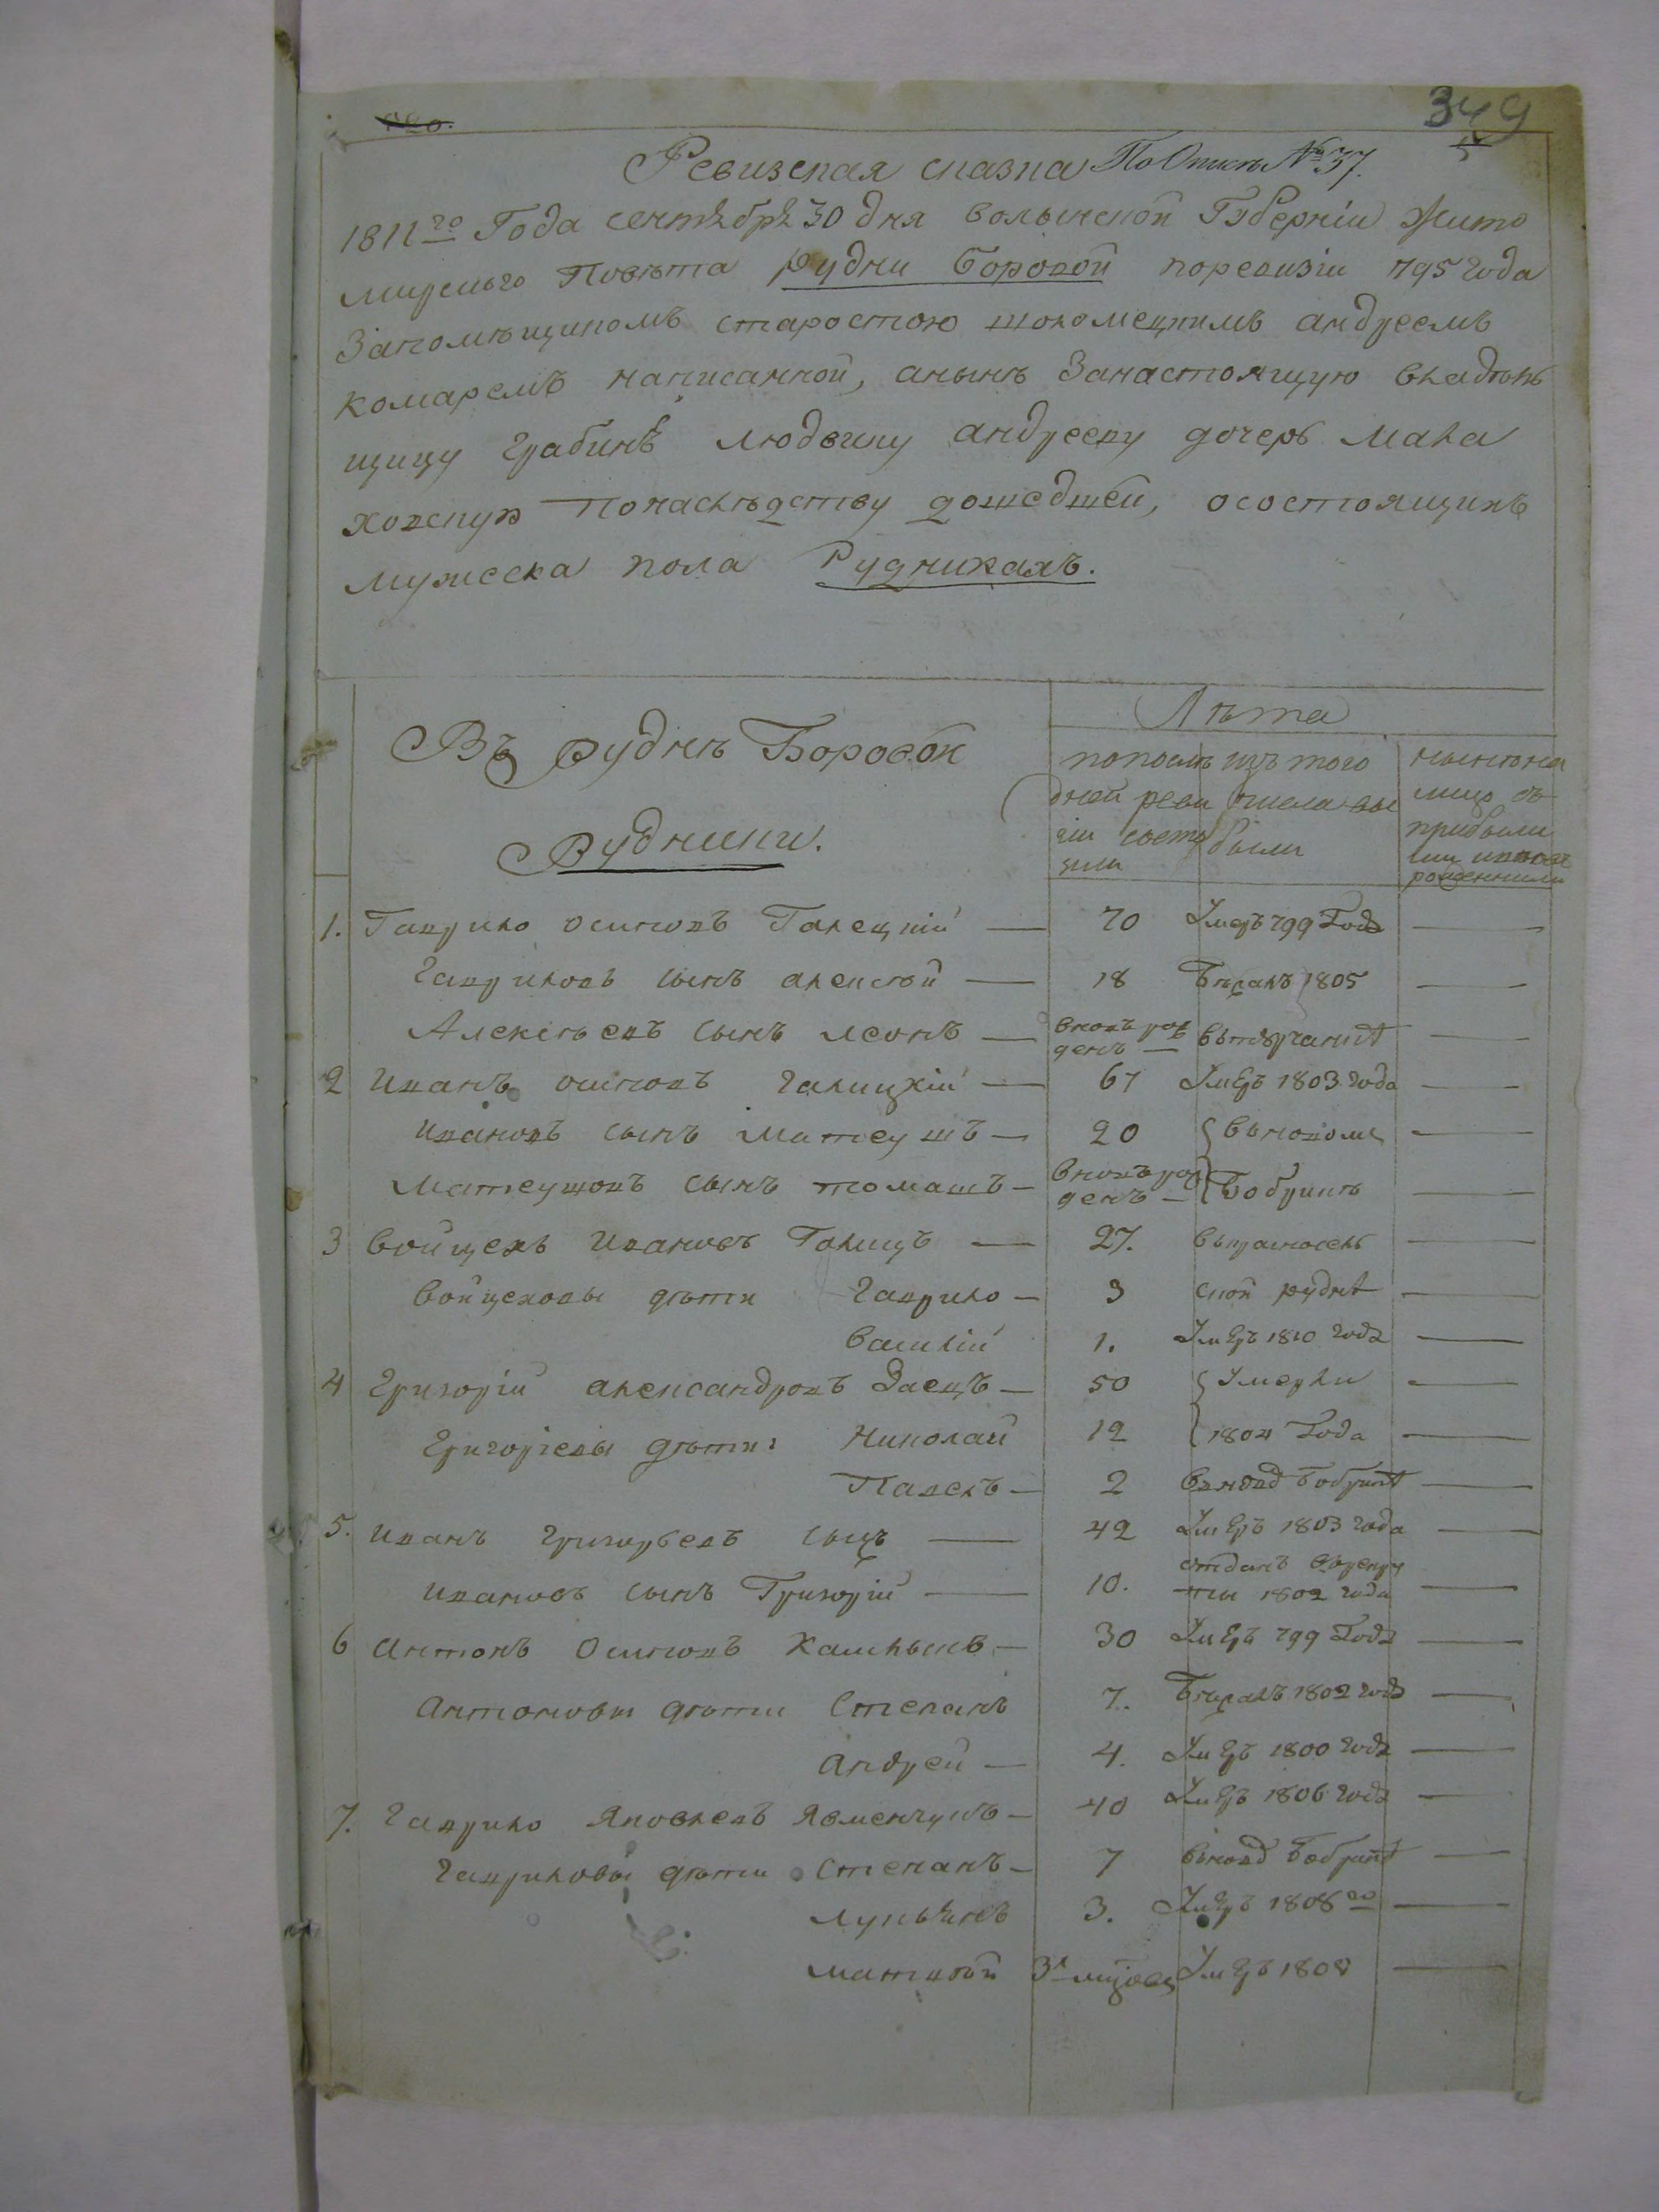 349
Ревизская сказка По Описи № 37.
1811го Года сентября 30 дня волынской Губерніи Жито
мирскаго Повѣта Рудни Боровой поревизіи 795 года
Запомѣщикомъ старостою андреемъ
комаремъ написанной, анынѣ Занастоящую владѣль
щицу Людвику андрееву дочерь
понаслѣдству дошедшей, осостоящихъ
мужеска пола Рудникахъ.
Въ Руднѣ Боровой
Рудники.
Лѣта
попослѣ
дней реви
зіи состо
яли
изъ того
числа вы
были
нынѣна
лицо съ
прибыли
ми ивновь
рожденными
1. Гаврило осиповъ Галецкій — 70 Умеръ 799 Года —
Гавриловъ сынъ алексѣй — 18 Бѣжалъ 1805 —
Алексѣевъ сынъ леонъ — вновь рож
денъ — —
2 Иванъ осиповъ галицкій — 67 Умеръ 1803 года —
Ивановъ сынъ Матеушъ — 20 вьновомъ —
Матеушовъ сынъ томашъ — вновь рож
денъ — Бобрикѣ —
3 Войцехъ Ивановъ Галицъ — 27. —
Войцеховы дѣти Гаврило — 3 ской руднѣ —
Василій 1. Умеръ 1810 года —
4 Григорій александровъ Заецъ — 50 Умерли —
Григоріевы дѣти: Николай 12 1804 Года —
Павелъ — 2 вновод Бобрикѣ —
5. Иванъ Григорьевъ сыцъ — 42 Умеръ 1803 года —
Ивановъ сынъ Григорій — 10. отданъ врекру
ты 1802 года —
6 Антонъ Осиповъ — 30 Умеръ 799 Года —
Антоновы дѣти Степанъ 7. Бѣжалъ 1802 года —
андрей — 4. Умеръ 1800 года —
7. Гаврило Яковлевъ Явменчукъ — 40 Умеръ 1806 года —
Гавриловы дѣти Степанъ — 7 вновод Бобрикѣ —
лукьянъ 3. Умеръ 1808го —
матвѣй 3х Умеръ 1808 —